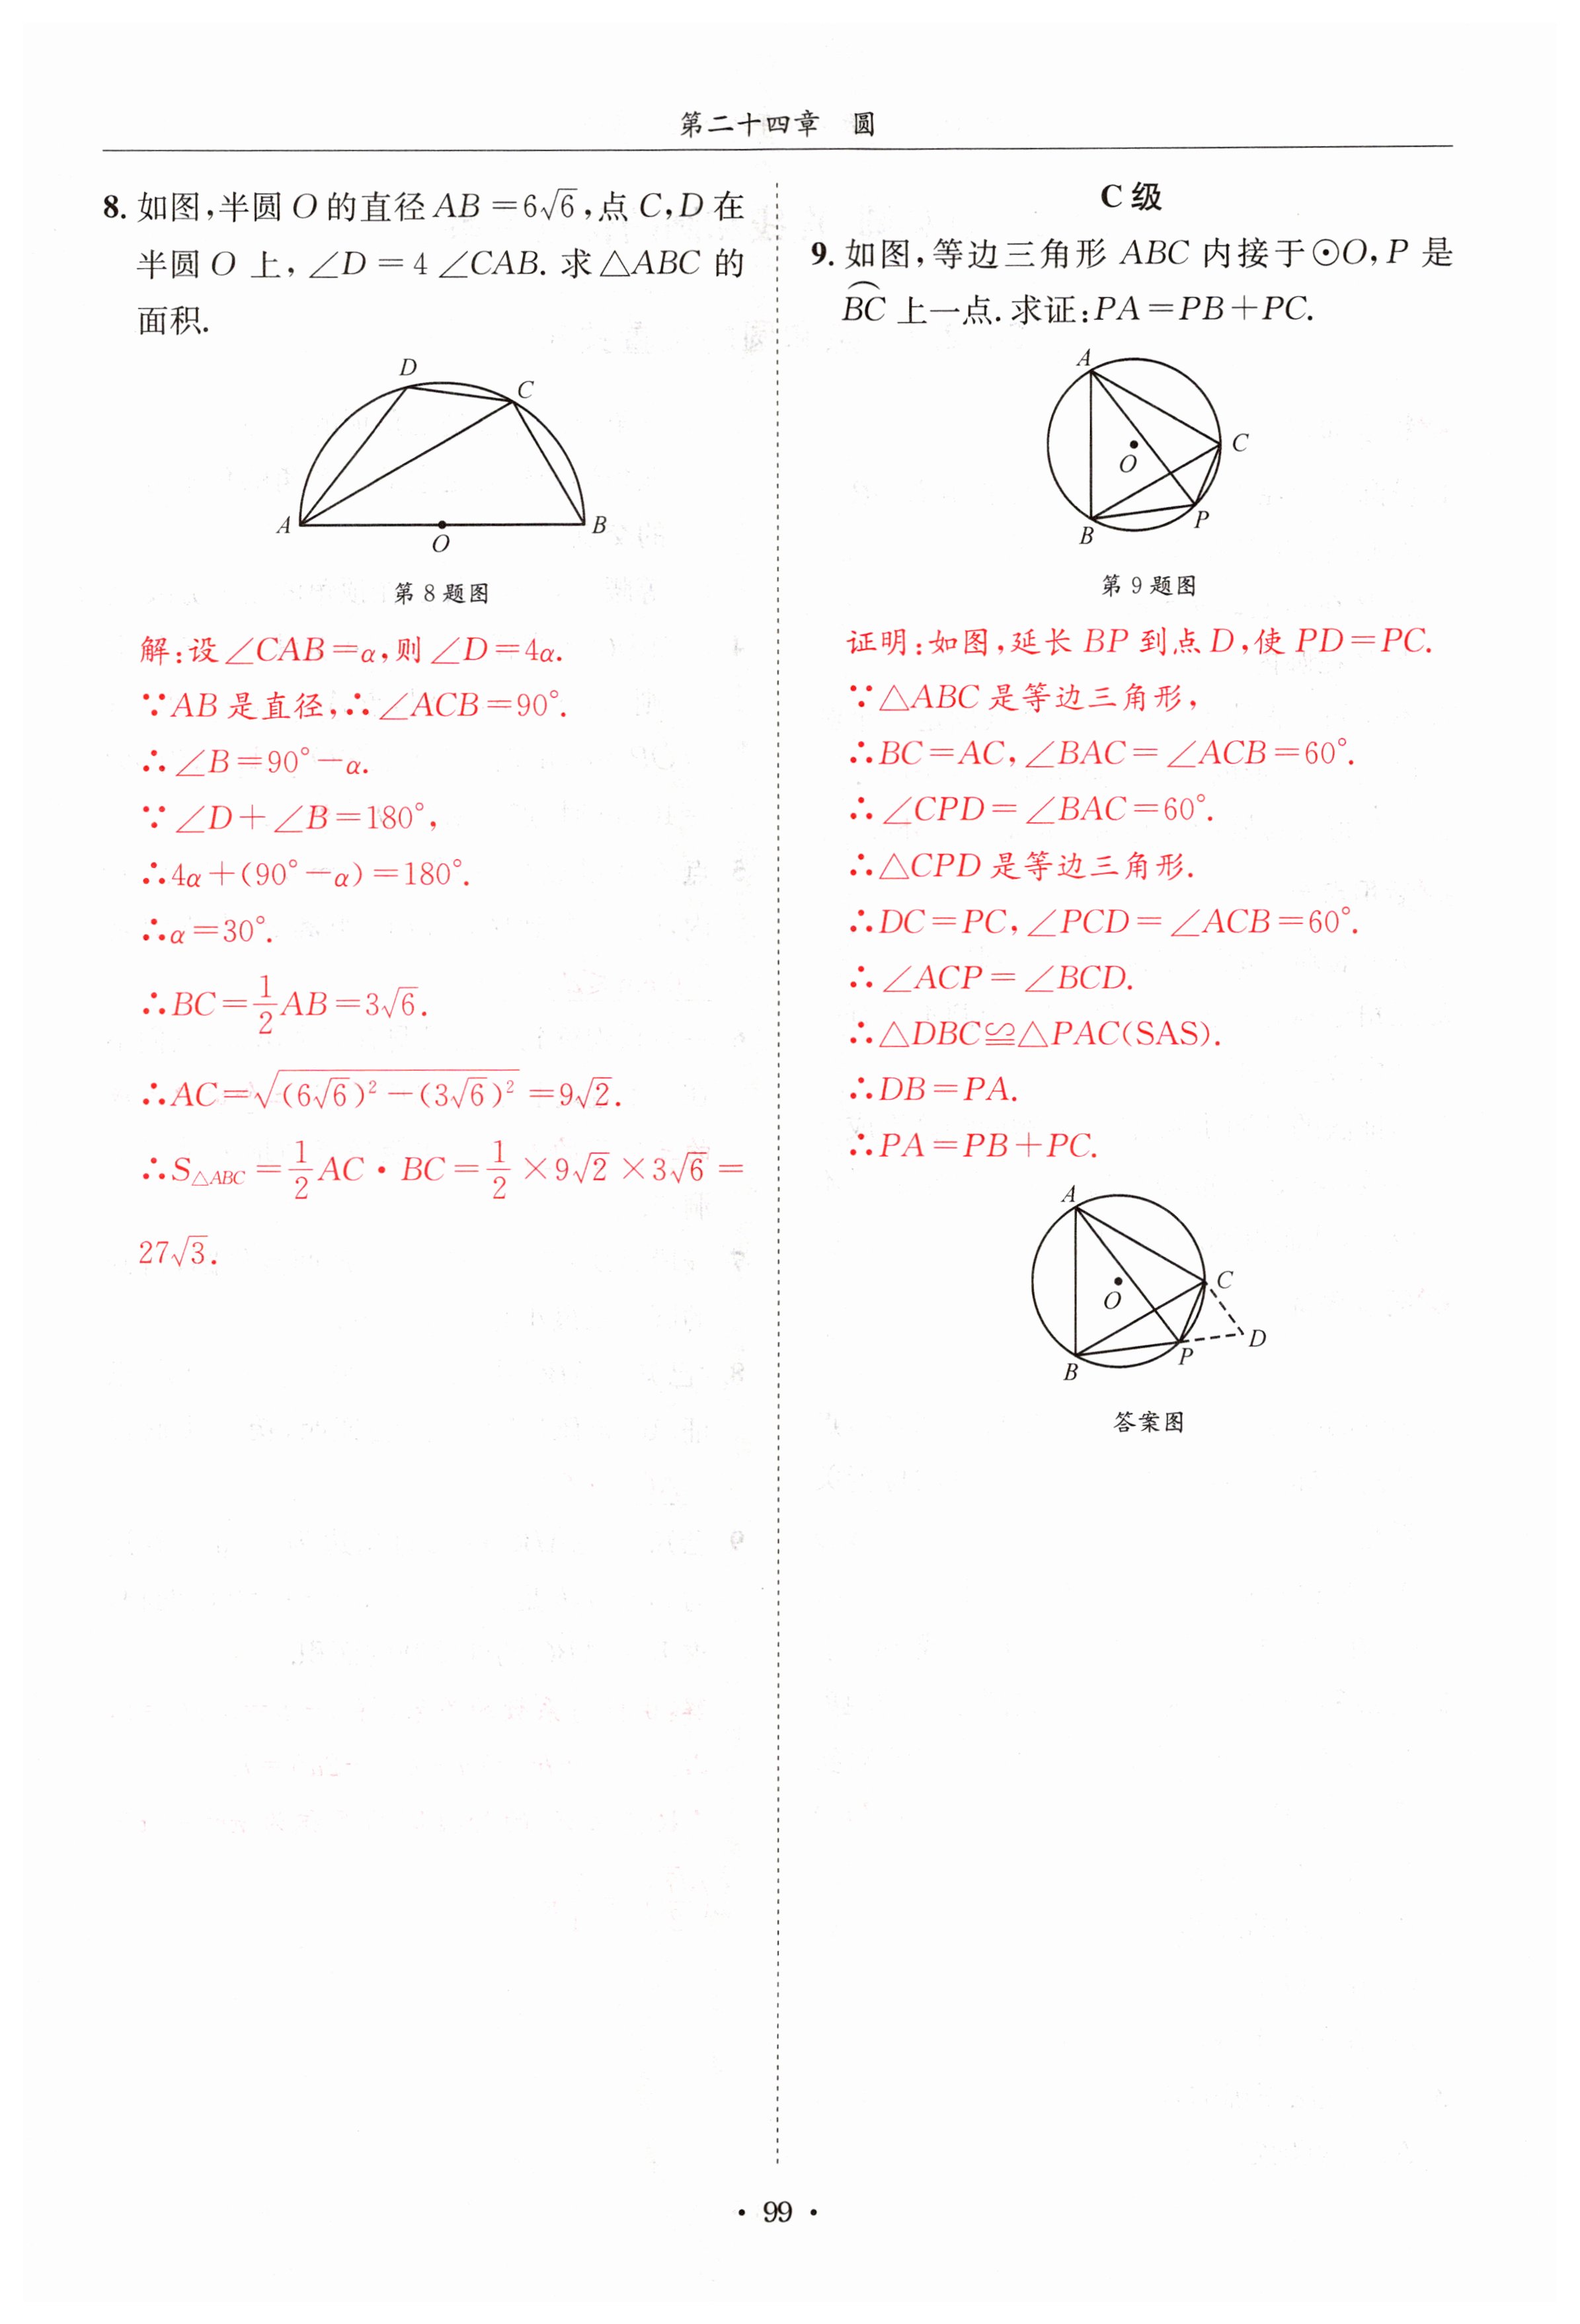 第二十四章 圆
8. 如图,半圆 O 的直径 AB=6√6,点 C,D 在
半圆 O 上,∠D=4∠CAB. 求△ABC 的
面积.
D
C
A
B
O
第 8 题图
解:设∠CAB=α,则∠D=4α.
∵AB 是直径,∴∠ACB=90°.
∴∠B=90°-α.
∵∠D+∠B=180°,
∴4α+(90°-α)=180°.
∴α=30°.
∴BC=1/2AB=3√6.
∴AC=√((6√6)²-(3√6)²)=9√2.
∴S△ABC=1/2AC·BC=1/2×9√2×3√6=
27√3.
C 级
9. 如图,等边三角形 ABC 内接于⊙O,P 是
⌒BC 上一点. 求证:PA=PB+PC.
A
C
O
P
B
第 9 题图
证明:如图,延长 BP 到点 D,使 PD=PC.
∵△ABC 是等边三角形,
∴BC=AC,∠BAC=∠ACB=60°.
∴∠CPD=∠BAC=60°.
∴△CPD 是等边三角形.
∴DC=PC,∠PCD=∠ACB=60°.
∴∠ACP=∠BCD.
∴△DBC≌△PAC(SAS).
∴DB=PA.
∴PA=PB+PC.
A
C
O
D
P
B
答案图
· 99 ·